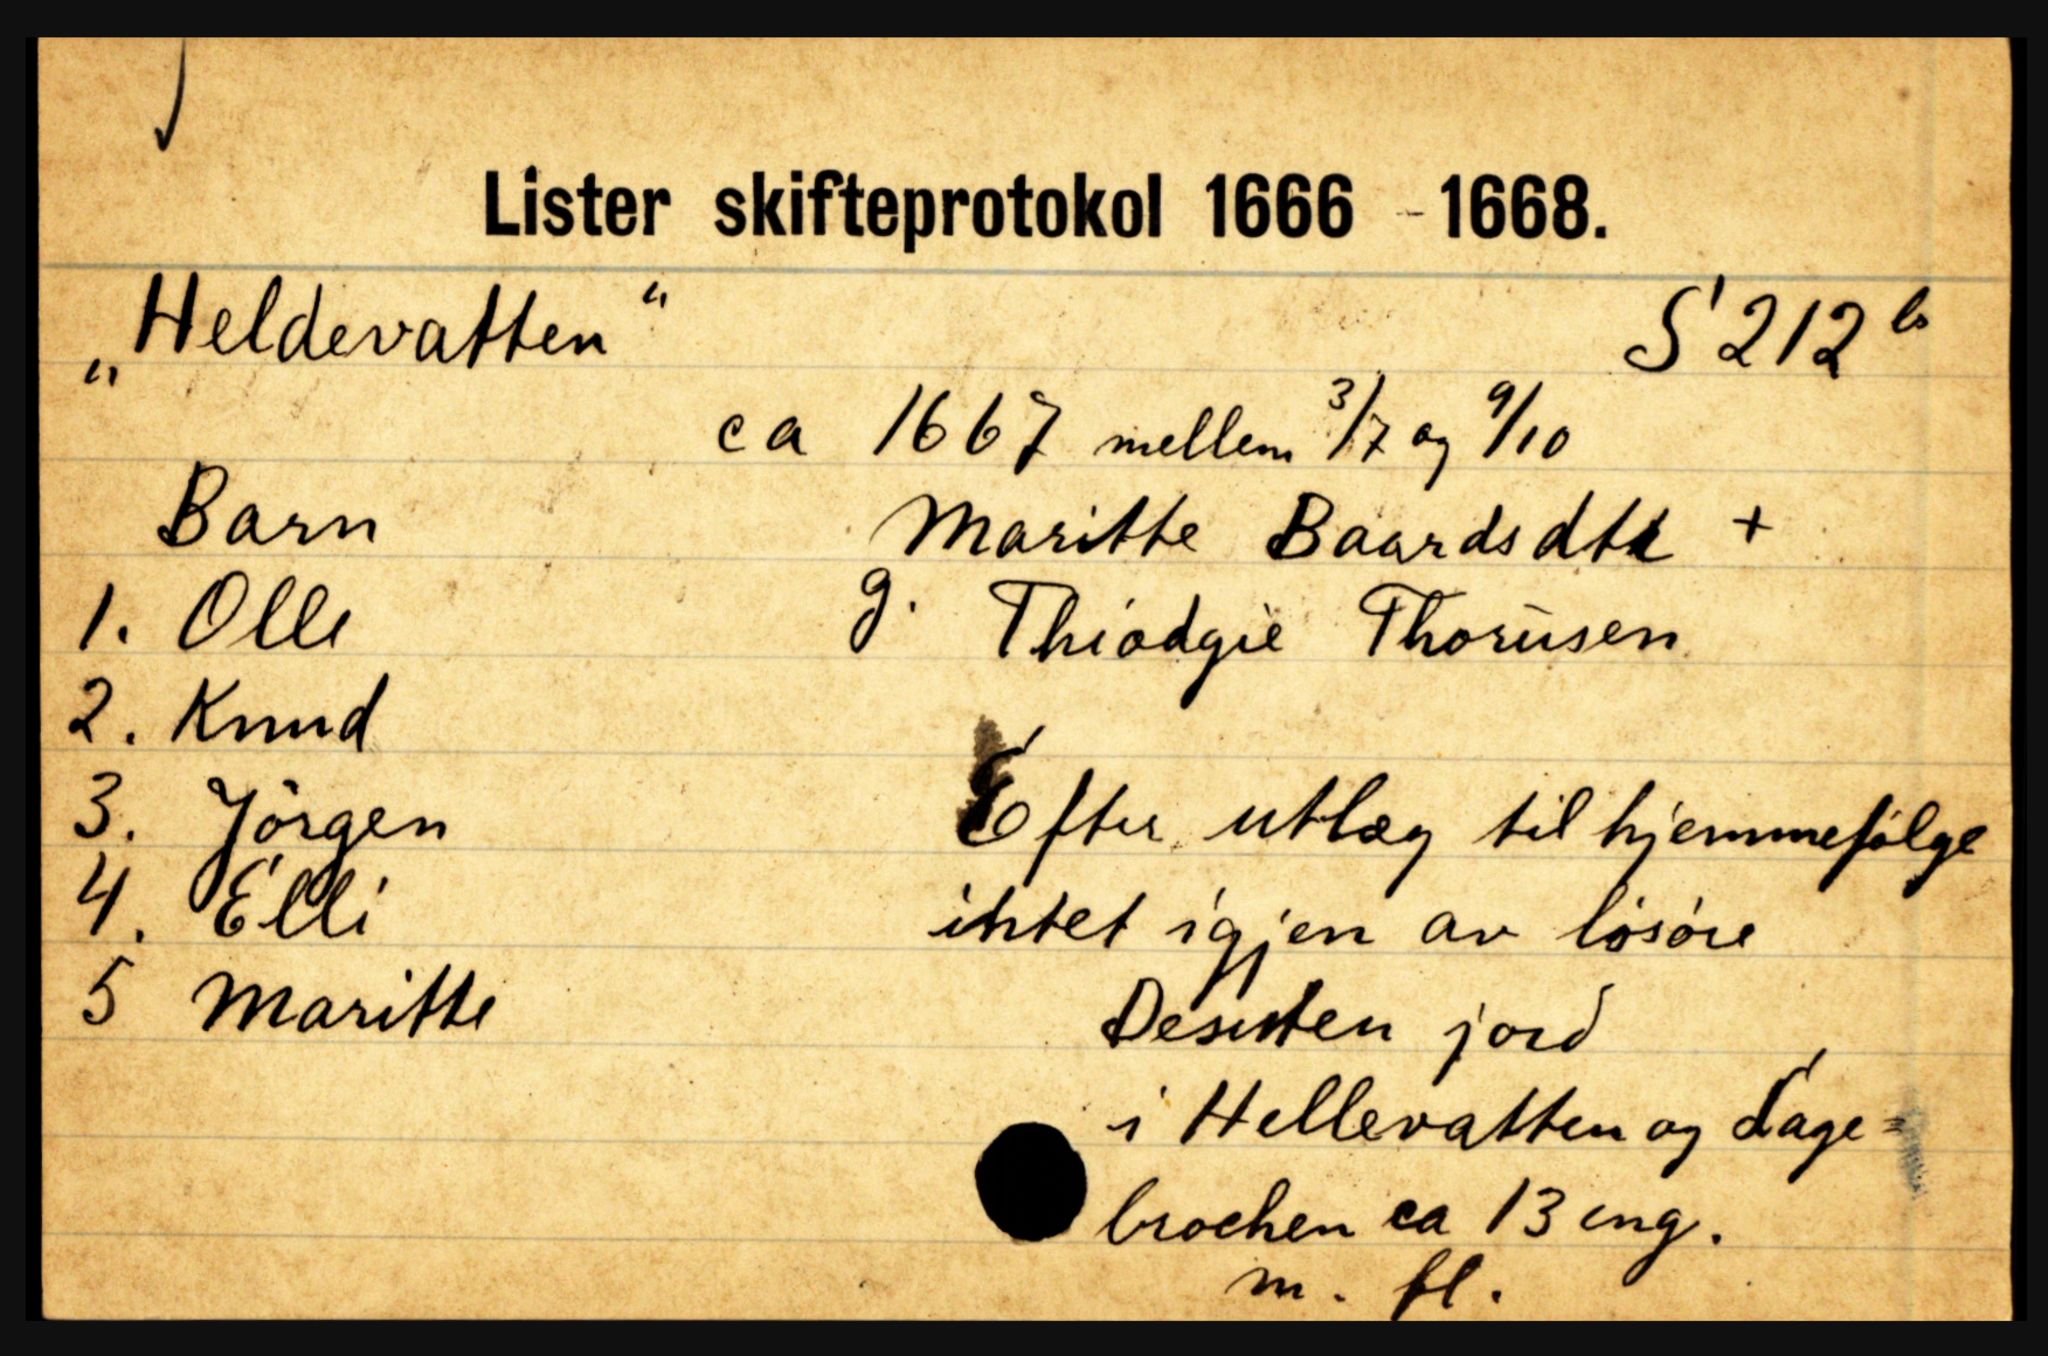 Lister skifteprotokol 1666 - 1668.
„Heldevatten“ S 212 b
ca 1667 mellem 3/7 og 9/10
Barn Maritte Baardsdtr +
1. Olle g. Thiodgie Thorusen
2. Knud
3. Jörgen Efter utlæg til hjemmefølge
4. Elli intet igjen av løsøre
5 Maritte Desuten jord
i Hellevatten og Lage=
brochen ca 13 eng.
m. fl.